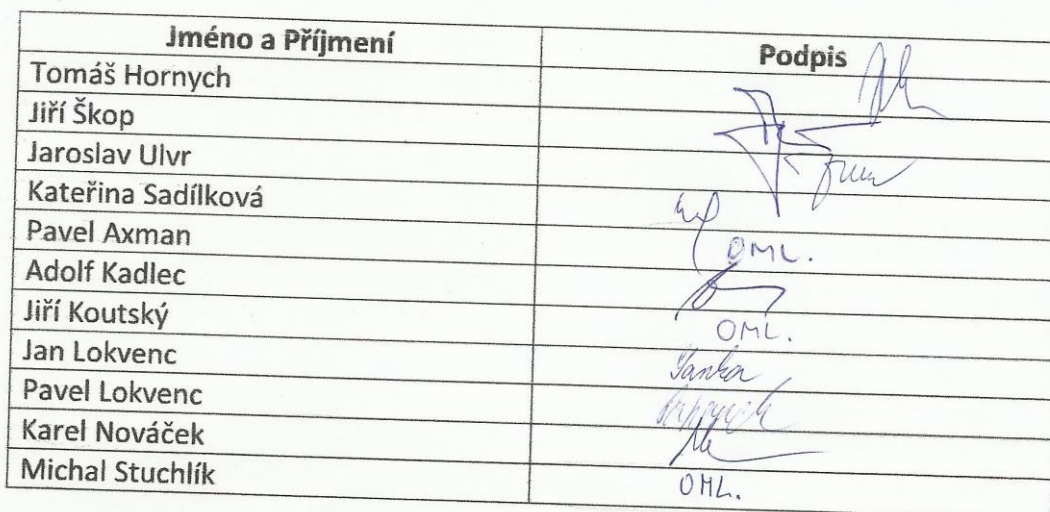 Jméno a Příjmení Podpis
Tomáš Hornych
Jiří Škop
Jaroslav Ulvr
Kateřina Sadílková
Pavel Axman OML.
Adolf Kadlec
Jiří Koutský OML.
Jan Lokvenc
Pavel Lokvenc
Karel Nováček
Michal Stuchlík OML.